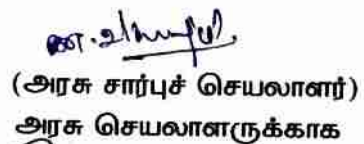 (அரசு சார்புச் செயலாளர்)
அரசு செயலாளருக்காக